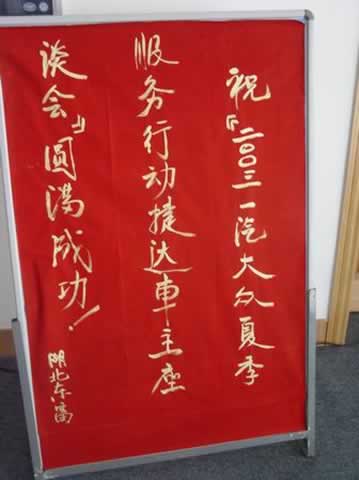 祝『二〇〇三一汽大众夏季
服务行动捷达車主座
谈会』圆满成功！
湖北东富